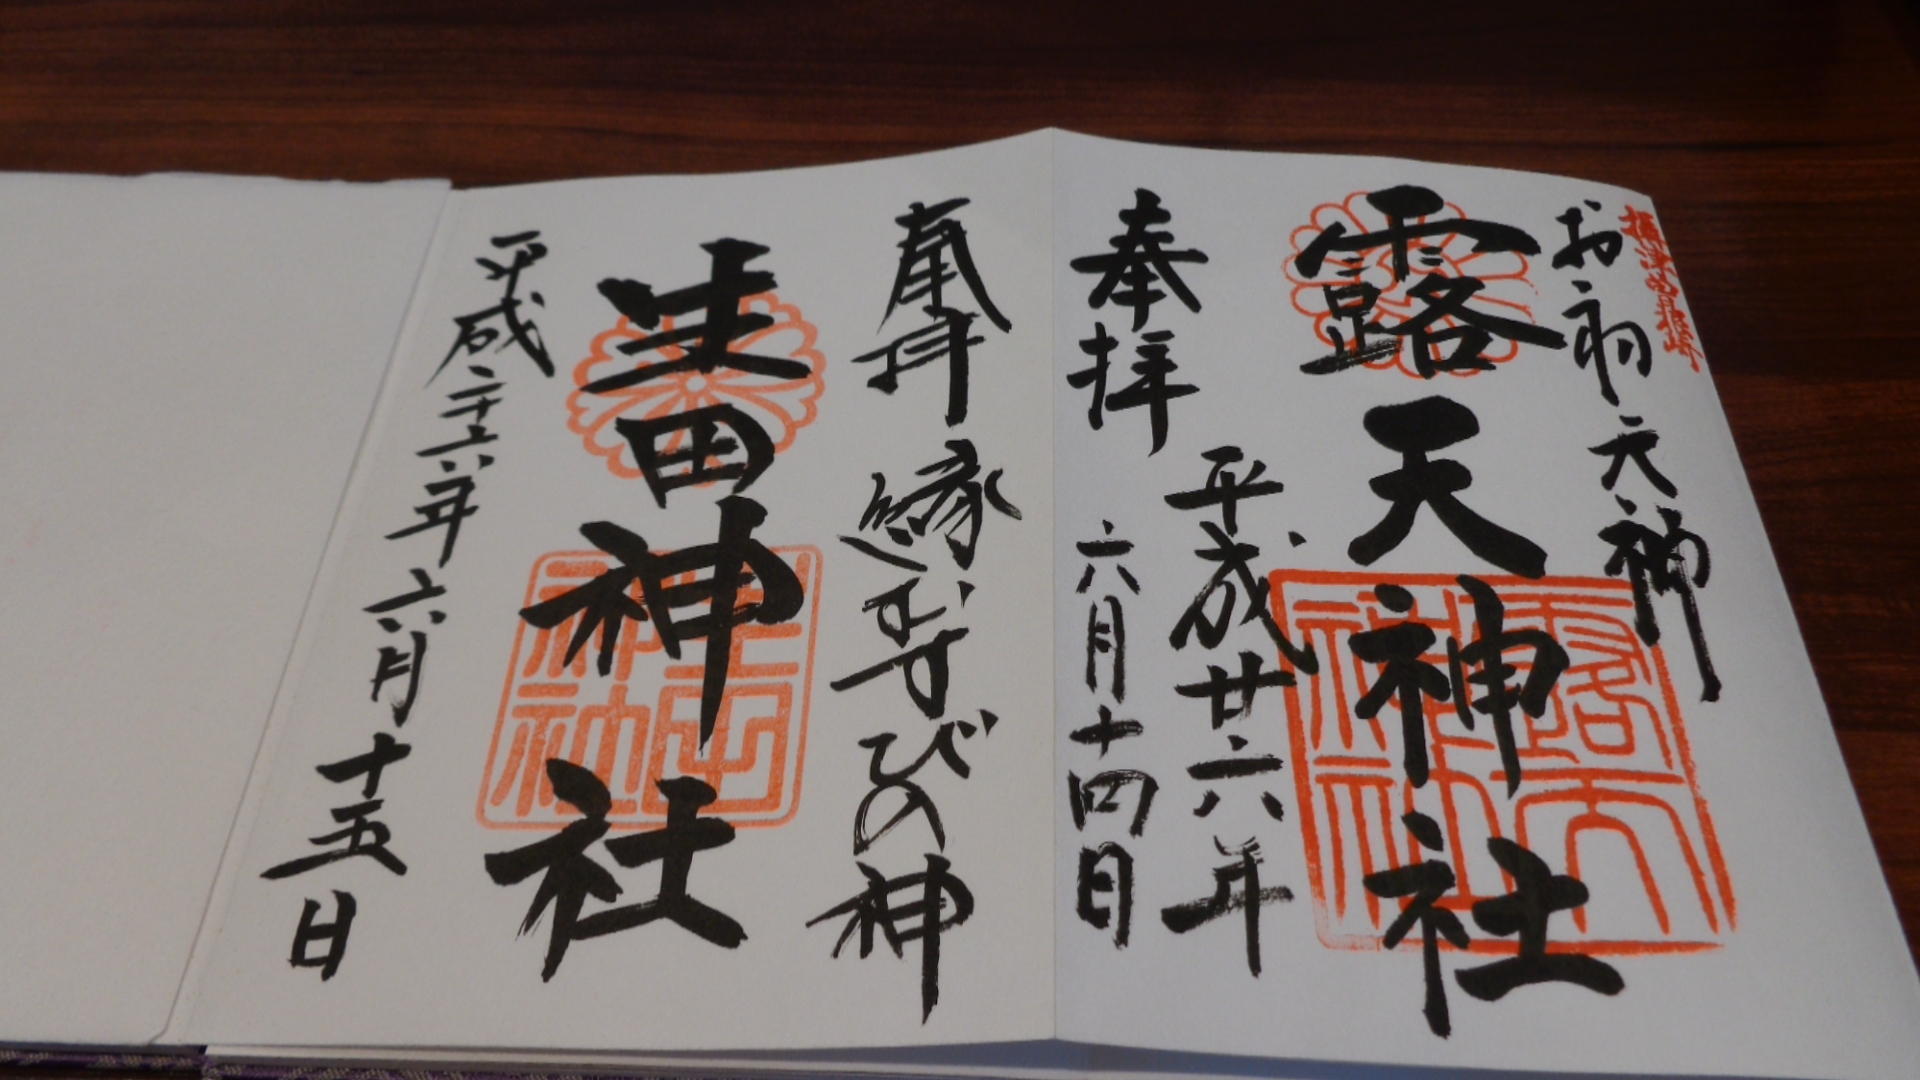 お初天神
露天神社
平成廿六年
奉拝 六月十四日
奉拝 縁むすびの神
生田神社
平成二十六年 六月十五日
露天神社
生田神社